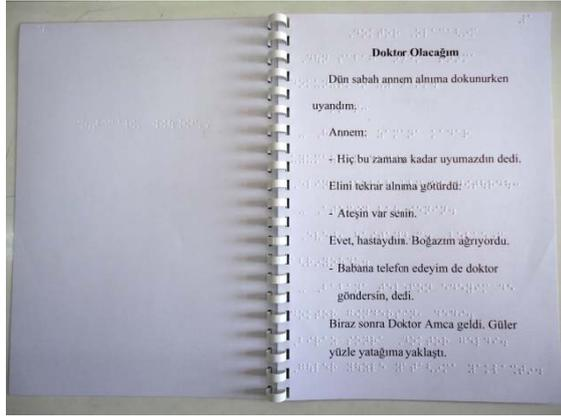 Doktor Olacağım
Dün sabah annem alnıma dokunurken
uyandım.
Annem:
- Hiç bu zamana kadar uyumazdın dedi.
Elini tekrar alnıma götürdü:
- Ateşin var senin.
Evet, hastaydım. Boğazım ağrıyordu.
- Babana telefon edeyim de doktor
göndersin, dedi.
Biraz sonra Doktor Amca geldi. Güler
yüzle yatağıma yaklaştı.